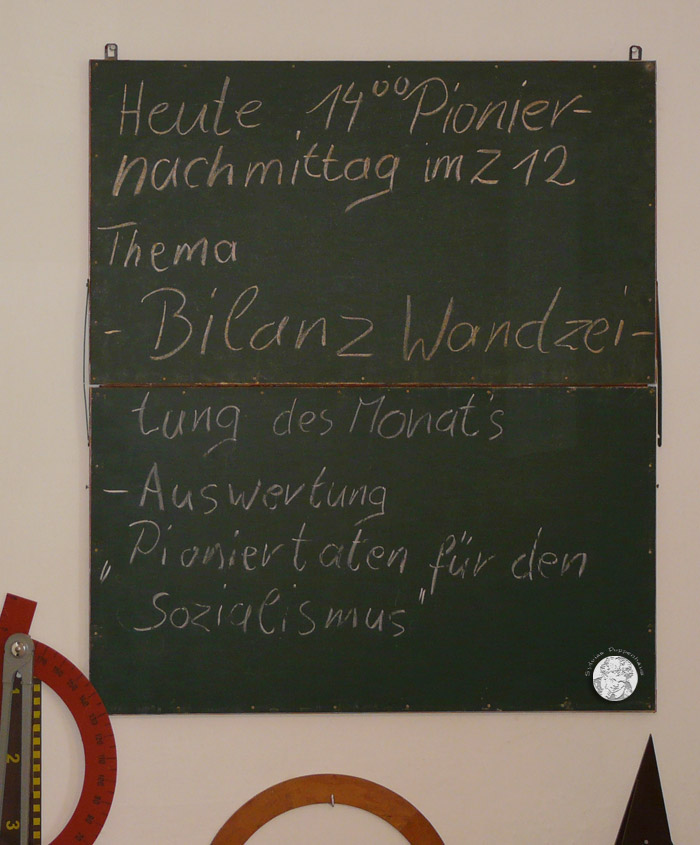 Heute 14⁰⁰ Pionier-
nachmittag im Z 12
Thema
- Bilanz Wandzei-
tung des Monat's
- Auswertung
„Pioniertaten für den
Sozialismus"
Sabines Puppenhaus
1
2
3